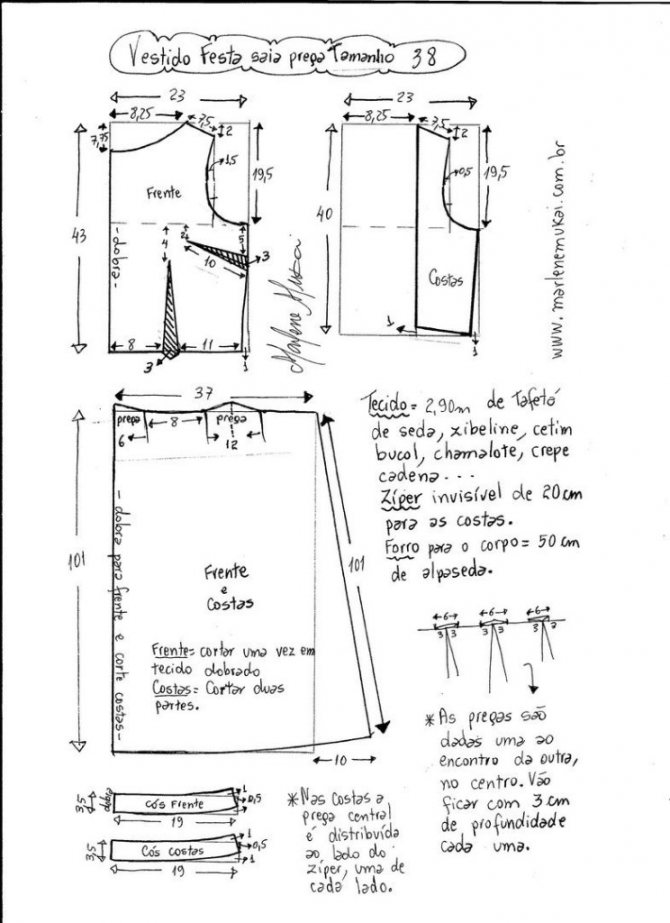 Vestido Festa saia prega Tamanho 38
23
8,25
7,5
2
7,75
1,5
19,5
Frente
43
- dobra -
4
2
5
10
3
8
11
3
1
Marlene Mukai
23
8,25
7,5
2
0,5
19,5
40
Costas
1
1
www.marlenemukai.com.br
37
prega
6
8
prega
12
101
101
- dobra para frente e corte costas -
Frente
e
Costas
Frente= cortar uma vez em
tecido dobrado
Costas= Cortar duas
partes.
10
Tecido= 2,90m de Tafetá
de seda, xibeline, cetim
bucol, chamalote, crepe
cadena...
Zíper invisível de 20cm
para as costas.
Forro para o corpo= 50 cm
de alpaseda.
6 6 6
3 3 3 3 3
*As pregas são
dadas uma ao
encontro da outra,
no centro. Vão
ficar com 3 cm
de profundidade
cada uma.
3,5
dobra
Cós Frente
1
0,5
19
3,5
Cós costas
1
0,5
1
19
*Nas Costas a
prega central
é distribuída
ao lado do
zíper, uma de
cada lado.